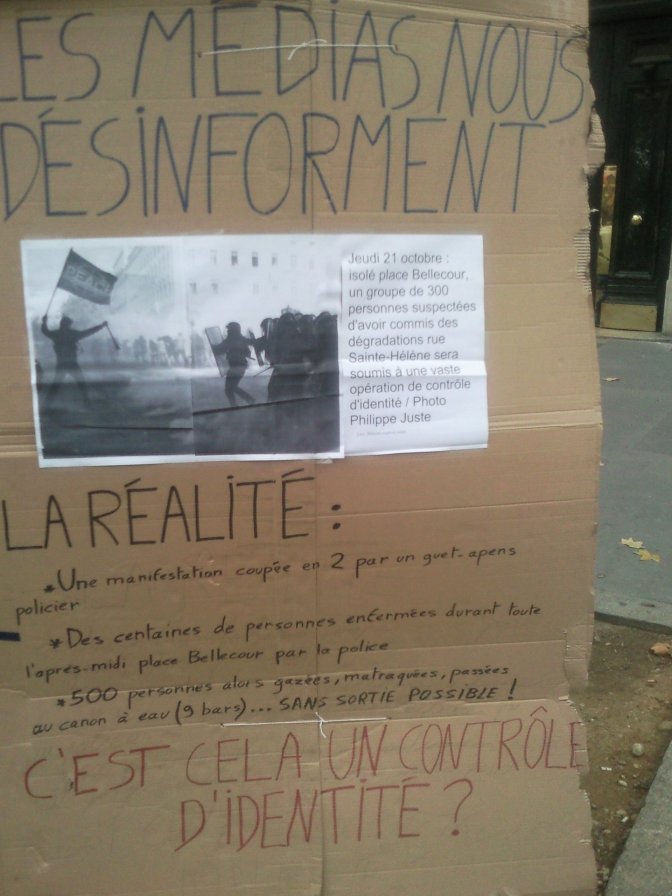 LES MÉDIAS NOUS
DÉSINFORMENT
PEACE
Jeudi 21 octobre :
isolé place Bellecour,
un groupe de 300
personnes suspectées
d'avoir commis des
dégradations rue
Sainte-Hélène sera
soumis à une vaste
opération de contrôle
d'identité / Photo
Philippe Juste
LA RÉALITÉ :
*Une manifestation coupée en 2 par un guet-apens
policier
*Des centaines de personnes enfermées durant toute
l'après-midi place Bellecour par la police
*500 personnes alors gazées, matraquées, passées
au canon à eau (9 bars)... SANS SORTIE POSSIBLE !
C'EST CELA UN CONTRÔLE
D'IDENTITÉ ?